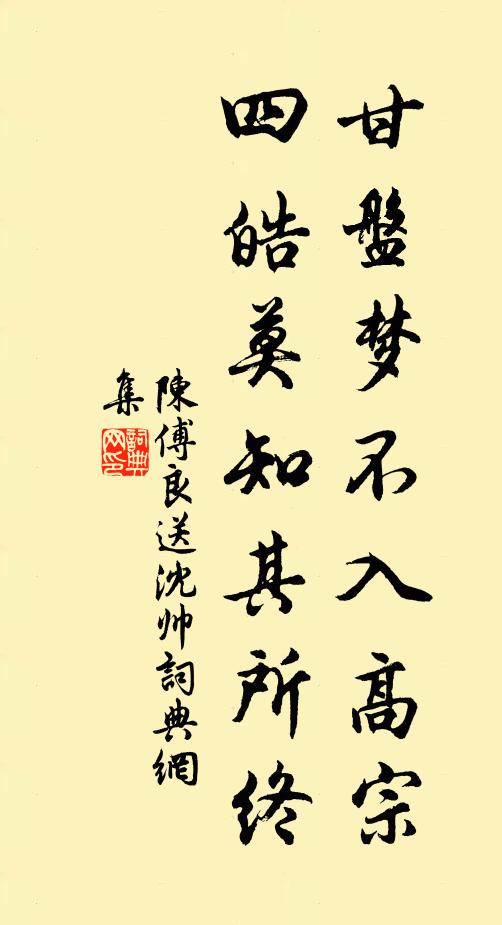 甘盤梦不入高宗
四皓莫知其所终
陳傅良送沈帅詞典網
集
詞典
网印